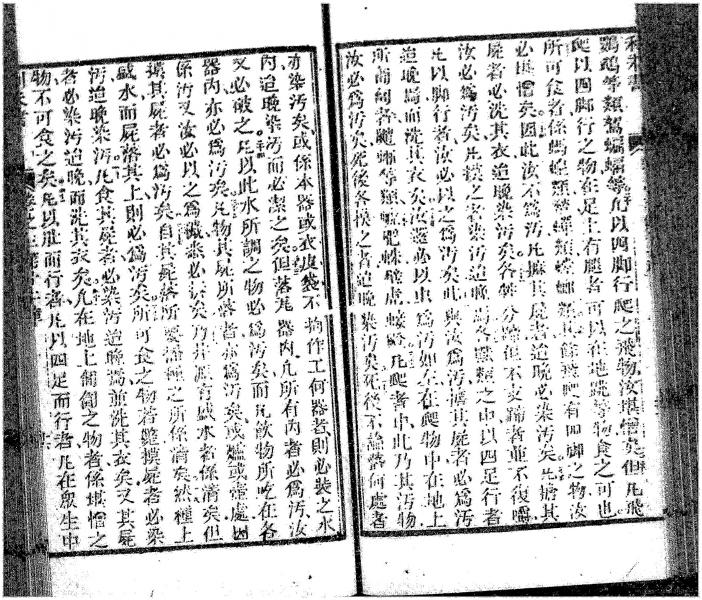 利未書
鸚鵡等類鷲蝙蝠等凡以四脚行爬之飛物汝堪憎矣但凡飛
爬以四脚行之物在足上有腿者可以在地跳等物食之可也
所可食者係螞蝗類蟬類螳螂類其餘飛爬有四脚之物汝
必堪憎矣因此汝不爲汚凡摸其屍者迨晚必染汚矣凡擔其
屍者必洗其衣迨晚染汚矣各獸分蹄但不支蹄者並不復嚼
汝必爲汚凡摸之者染汚迨獸類之中以四足行者
凡以脚行者汝必以之爲汚矣此與汝爲汚擔其屍者必爲汚
迨晚爲而洗其衣矣汝還必以由爲汚如左在爬物中在地上
所匍匐者鼠等類凡爬者中此乃其汚物
汝必爲汚矣死後各摸之者迨晚染汚矣死後不論落何處者
亦染汚矣或係木器或衣皮袋不拘作工何器者則必裝之水
內迨晚染汚而必潔之矣但落凡器內凡所有內者必爲汚汝
又必破之凡以此水所調之物必爲汚矣而凡飲物所吃在各
器內亦必爲汚矣凡物其屍所落者亦爲汚矣或爐或壺處因
係汚又汝必以之爲乃井源有盛水者係清矣但
摸其屍者必爲汚矣自其屍落所要播種之所係清矣然種上
盛水而屍落其上則必爲汚矣所可食之物若斃摸屍者必染
汚迨晚染汚凡食其屍者必染汚迨晚爲並洗其衣矣又其屍
者必染汚迨晚而洗其衣矣凡在地上匍匐之物者係堪憎之
物不可食之矣凡以肚而行者凡以四足而行者凡在衆生中